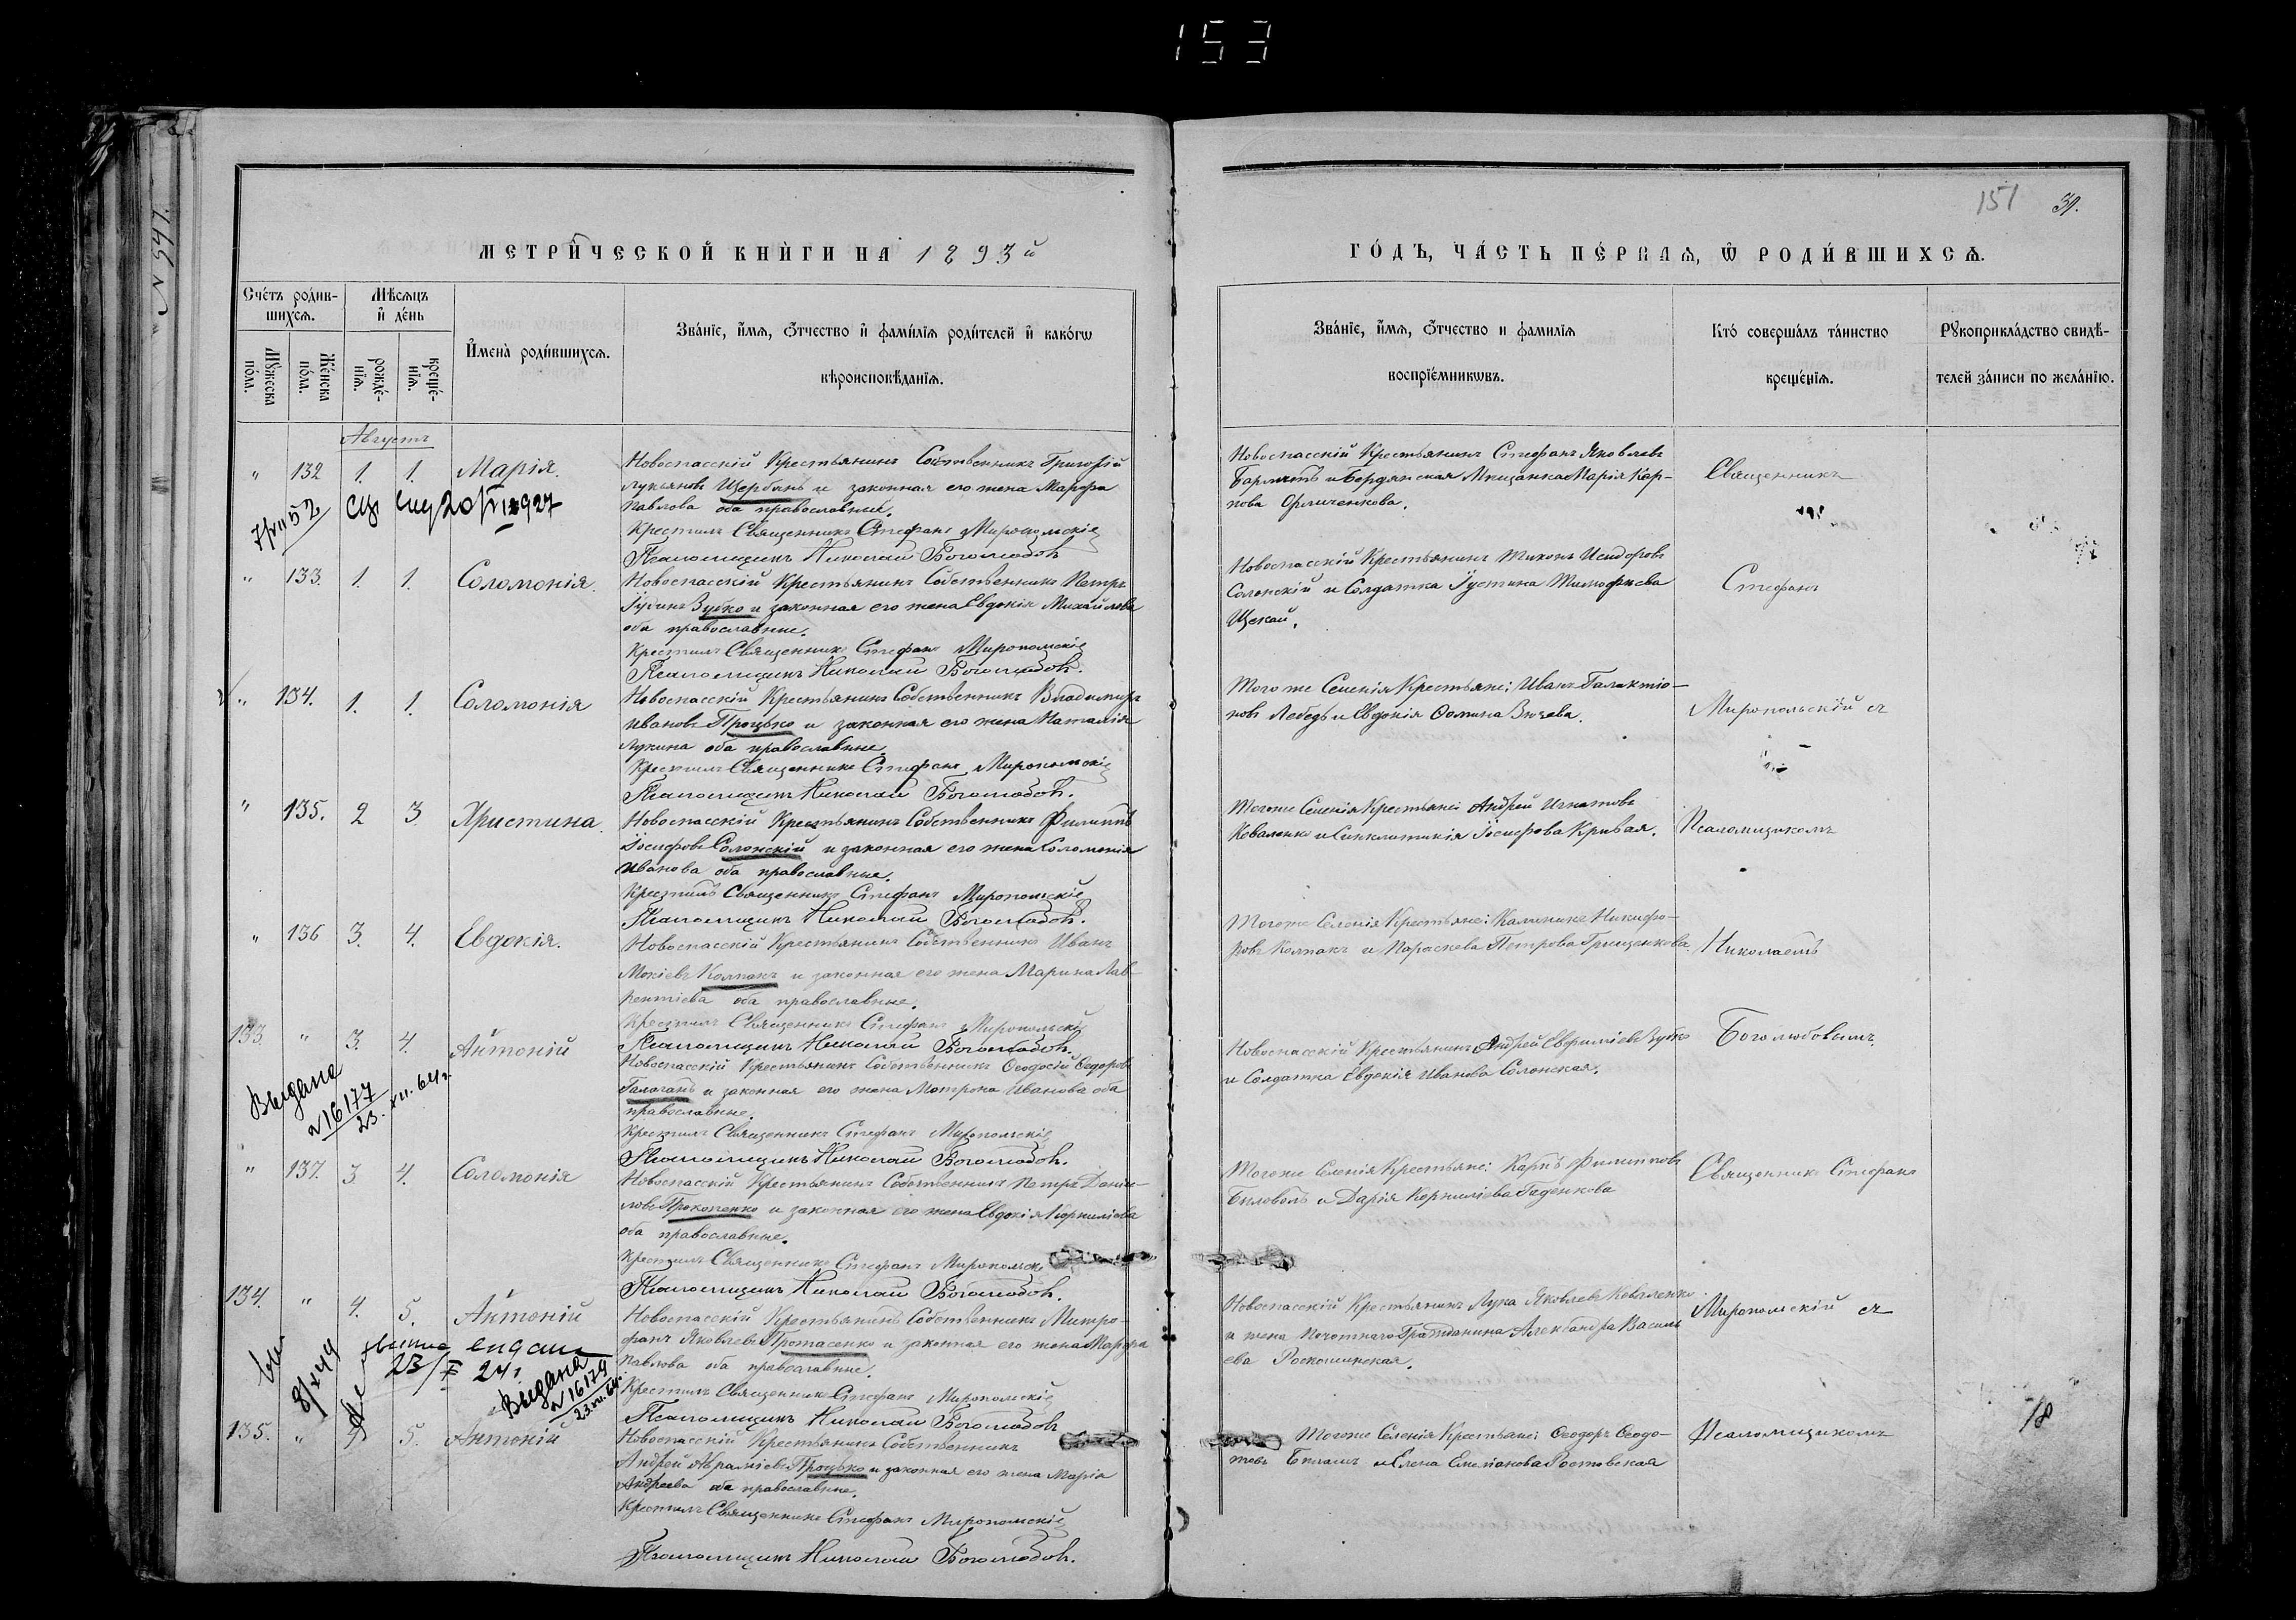 153
151 39.
МЕТРИЧЕСКОЙ КНИГИ НА 1893й
ГОДЪ, ЧАСТЬ ПЕРВАЯ, Ѿ РОДИВШИХСЯ.
Счетъ родив-
шихся.
Мѣсяцъ
и день
Мужеска
пола.
Женска
пола.
рожде-
нія.
креще-
нія.
Имена родившихся.
Званіе, имя, отчество и фамилія родителей и какогѡ
вѣроисповѣданія.
Званіе, имя, отчество и фамилія
воспріемникѡвъ.
Кто совершалъ таинство
крещенія.
Рукоприкладство свидѣ-
телей записи по желанію.
Августъ
" 132 1. 1. Марія.
Новоспасскій Крестьянинъ Собственникъ Григорій
Лукьяновъ Щербань и законная его жена Марфа
Павлова оба православные.
Крестилъ Священникъ Стефанъ Миропольскій
Псаломщикъ Николай Боголюбовъ
Новоспасскій Крестьянинъ Стефанъ Яковлевъ
и Бердянская Мещанка Марія Кар-
пова
Священникъ
" 133. 1. 1. Соломонія.
Новоспасскій Крестьянинъ Собственникъ Петръ
Іудинъ Зубко и законная его жена Евдокія Михайлова
оба православные.
Крестилъ Священникъ Стефанъ Миропольскій
Псаломщикъ Николай Боголюбовъ.
Новоспасскій Крестьянинъ Тихонъ Исидоровъ
Солонскій и Солдатка Іустина Тимофѣева
Стефанъ
" 134. 1. 1. Соломонія
Новоспасскій Крестьянинъ Собственникъ Владимиръ
Ивановъ Процько и законная его жена Наталія
Лукина оба православные.
Крестилъ Священникъ Стефанъ Миропольскій
Псаломщикъ Николай Боголюбовъ.
Того же Селенія Крестьяне: Иванъ Галактіо-
новъ Лебедь и Евдокія Ѳомина
Миропольскій съ
" 135. 2 3 Христина.
Новоспасскій Крестьянинъ Собственникъ Филиппъ
Іосифовъ Солонскій и законная его жена Соломонія
Иванова оба православные.
Крестилъ Священникъ Стефанъ Миропольскій
Псаломщикъ Николай Боголюбовъ.
Тогоже Селенія Крестьяне Андрей Игнатовъ
Коваленко и Синклитикія Іосифова Кривая.
Псаломщикомъ
" 136 3. 4. Евдокія.
Новоспасскій Крестьянинъ Собственникъ Иванъ
Мокіевъ Колпакъ и законная его жена Марина Лав-
рентіева оба православные.
Крестилъ Священникъ Стефанъ Миропольскій
Псаломщикъ Николай Боголюбовъ.
Тогоже Селенія Крестьяне: Калиникъ Никифо-
ровъ Колпакъ и Параскева Петрова Грищенкова.
Николаемъ
133. " 3. 4. Антоній
Новоспасскій Крестьянинъ Собственникъ Ѳеодосій Ѳедоровъ
Галаганъ и законная его жена Мотрона Иванова оба
православные.
Крестилъ Священникъ Стефанъ Миропольскій
Псаломщикъ Николай Боголюбовъ.
Новоспасскій Крестьянинъ Андрей Евфиміевъ Зубко
и Солдатка Евдокія Иванова Солонская.
Боголюбовымъ.
Выдана
№16177
23. XII. 64г.
" 137. 3 4. Соломонія
Новоспасскій Крестьянинъ Собственникъ Петръ Дані-
ловъ Прокопенко и законная его жена Евдокія Корниліева
оба православные.
Крестилъ Священникъ Стефанъ
Псаломщикъ Николай Боголюбовъ.
Тогоже Селенія Крестьяне: Карпъ Филипповъ
Бѣловолъ и Дарія Корниліева Гаденкова
Священникъ Стефанъ
134. " 4. 5. Антоній
Новоспасскій Крестьянинъ Собственникъ Митро-
фанъ Яковлевъ Протасенко и законная его жена Марфа
Павлова оба православные.
Крестилъ Священникъ Стефанъ Миропольскій
Псаломщикъ Николай Боголюбовъ
Новоспасскій Крестьянинъ Лука Яковлевъ Коваленко
и жена Почотнаго Гражданина Александра Василь
ева
Миропольскій съ
Выдана
№16179
23.XII.64г.
135. " 4 5. Антоній
Новоспасскій Крестьянинъ Собственникъ
Андрей Авраміевъ Процько и законная его жена Марія
Андреева оба православные.
Крестилъ Священникъ Стефанъ Миропольскій
Псаломщикъ Николай Боголюбовъ.
Тогоже Селенія Крестьяне: Ѳеодоръ Ѳеодо-
товъ и Елена Емельянова Ростовская
Псаломщикомъ
18